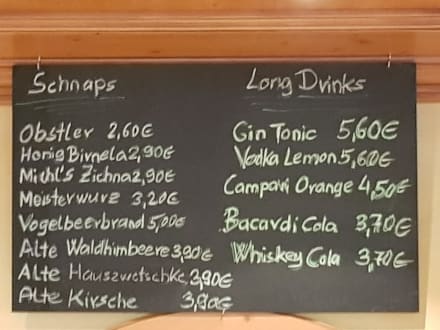 Schnaps
Obstler 2,60€
Honig Birnela 2,90€
Michl's Zichna 2,90€
Meisterwurz 3,20€
Vogelbeerbrand 5,00€
Alte Waldhimbeere 3,90€
Alte Hauszwetschke 3,90€
Alte Kirsche 3,90€
Long Drinks
Gin Tonic 5,60€
Vodka Lemon 5,60€
Campari Orange 4,50€
Bacardi Cola 3,70€
Whiskey Cola 3,70€